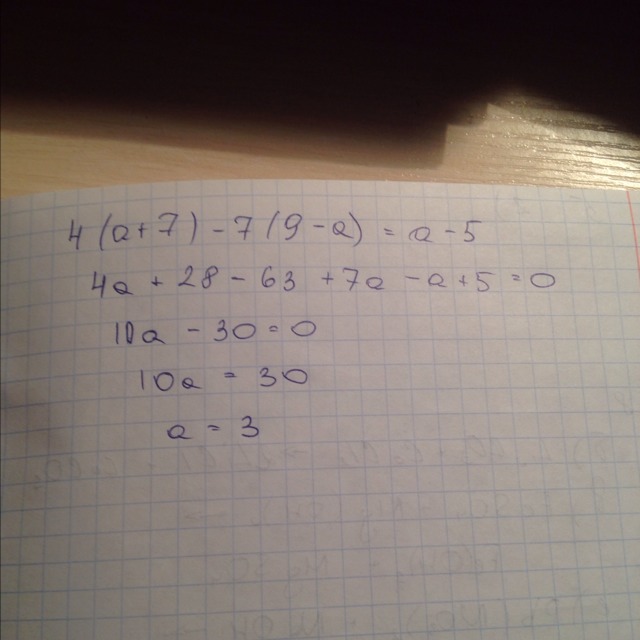 4(a+7)-7(9-a)=a-5
4a+28-63+7a-a+5=0
10a-30=0
10a=30
a=3